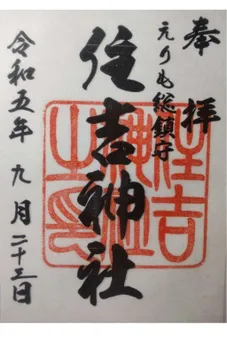 奉拝
えりも総鎮守
住吉神社
令和五年九月二十三日
住吉神社之印